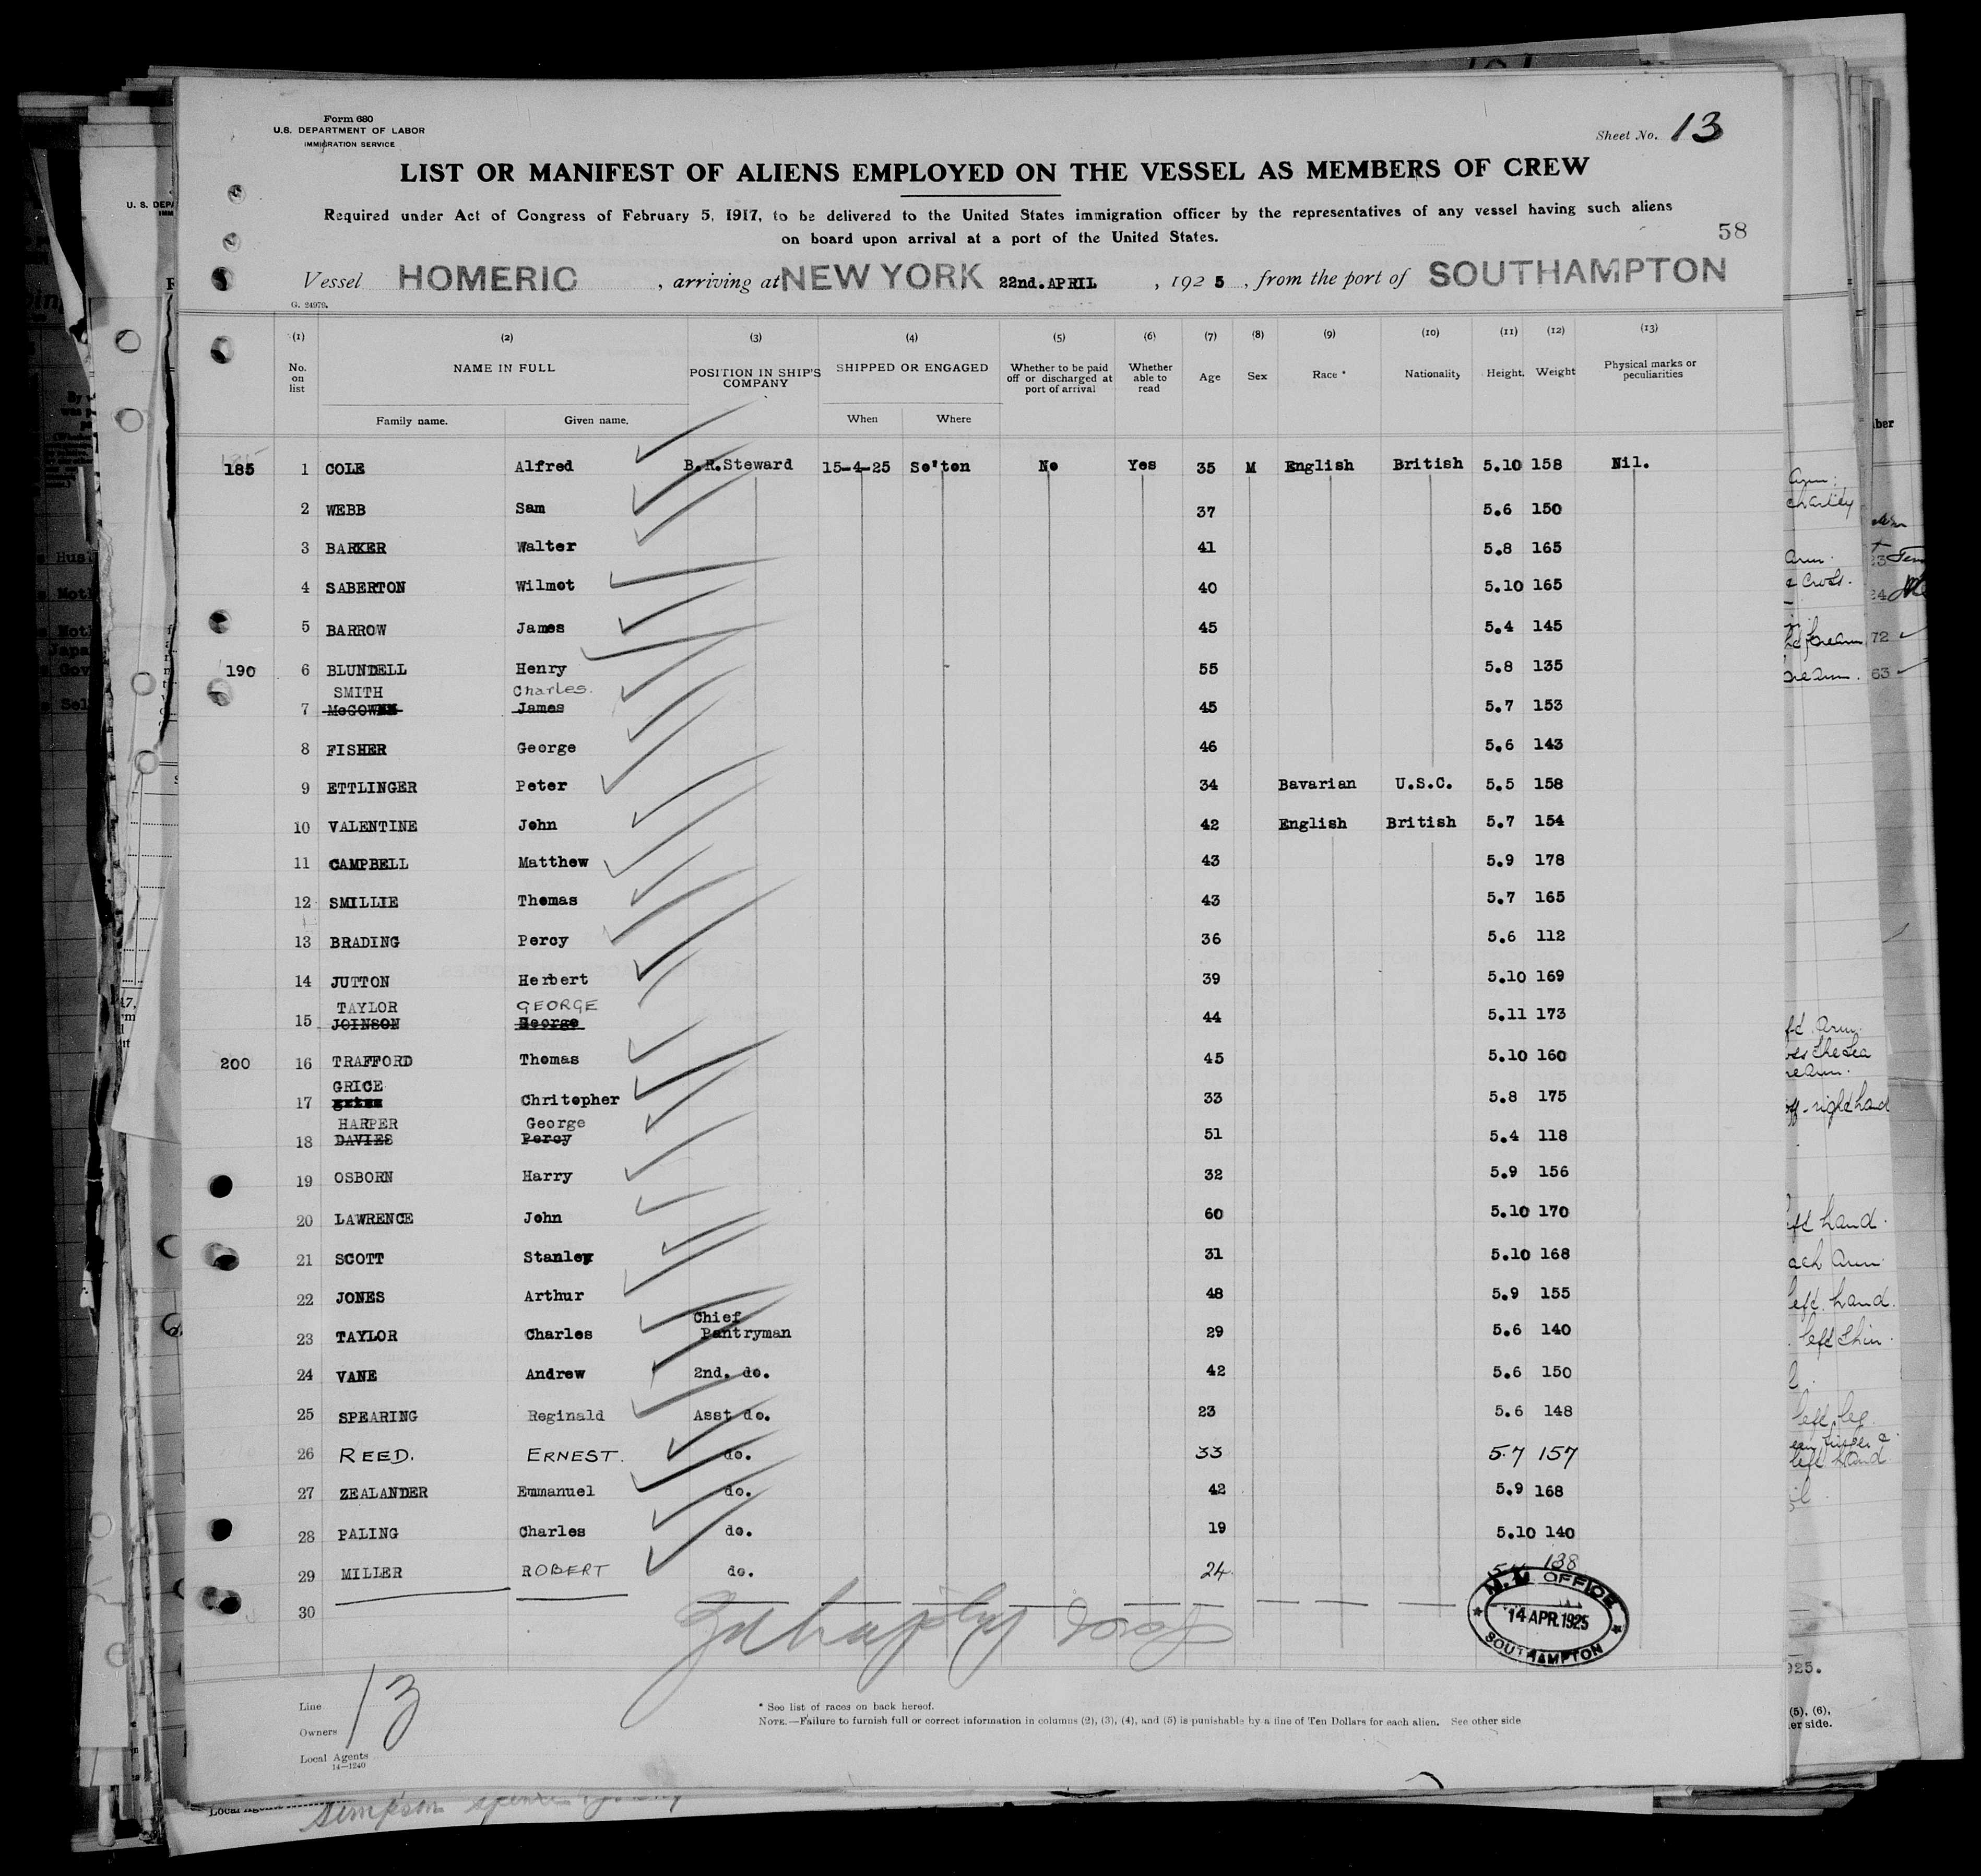 Form 680
U.S. DEPARTMENT OF LABOR
IMMIGRATION SERVICE
Sheet No. 13
LIST OR MANIFEST OF ALIENS EMPLOYED ON THE VESSEL AS MEMBERS OF CREW
Required under Act of Congress of February 5, 1917, to be delivered to the United States immigration officer by the representatives of any vessel having such aliens
on board upon arrival at a port of the United States.
58
Vessel HOMERIC, arriving at NEW YORK 22nd. APRIL, 1925, from the port of SOUTHAMPTON
G. 24979.
(1) (2) (3) (4) (5) (6) (7) (8) (9) (10) (11) (12) (13)
No. on list NAME IN FULL POSITION IN SHIP'S COMPANY SHIPPED OR ENGAGED Whether to be paid off or discharged at port of arrival Whether able to read Age Sex Race * Nationality Height. Weight Physical marks or peculiarities
Family name. Given name. When Where
185 1 COLE Alfred B.R.Steward 15-4-25 So'ton No Yes 35 M English British 5.10 158 Nil.
2 WEBB Sam 37 5.6 150
3 BARKER Walter 41 5.8 165
4 SABERTON Wilmot 40 5.10 165
5 BARROW James 45 5.4 145
190 6 BLUNDELL Henry 55 5.8 135
SMITH Charles.
7 McGOWAN James 45 5.7 153
8 FISHER George 46 5.6 143
9 ETTLINGER Peter 34 Bavarian U.S.C. 5.5 158
10 VALENTINE John 42 English British 5.7 154
11 CAMPBELL Matthew 43 5.9 178
12 SMILLIE Thomas 43 5.7 165
13 BRADING Percy 36 5.6 112
14 JUTTON Herbert 39 5.10 169
TAYLOR GEORGE
15 JOINSON George 44 5.11 173
200 16 TRAFFORD Thomas 45 5.10 160
GRICE
17 Chritopher 33 5.8 175
HARPER George
18 DAVIES Percy 51 5.4 118
19 OSBORN Harry 32 5.9 156
20 LAWRENCE John 60 5.10 170
21 SCOTT Stanley 31 5.10 168
22 JONES Arthur 48 5.9 155
23 TAYLOR Charles Chief Pantryman 29 5.6 140
24 VANE Andrew 2nd. do. 42 5.6 150
25 SPEARING Reginald Asst do. 23 5.6 148
26 REED. ERNEST. do. 33 5.7 157
27 ZEALANDER Emmanuel do. 42 5.9 168
28 PALING Charles do. 19 5.10 140
29 MILLER ROBERT do. 24 138
30
M.M OFFICE
14 APR. 1925
SOUTHAMPTON
Line
Owners
Local Agents
14—1240
13
* See list of races on back hereof.
NOTE.—Failure to furnish full or correct information in columns (2), (3), (4), and (5) is punishable by a fine of Ten Dollars for each alien. See other side